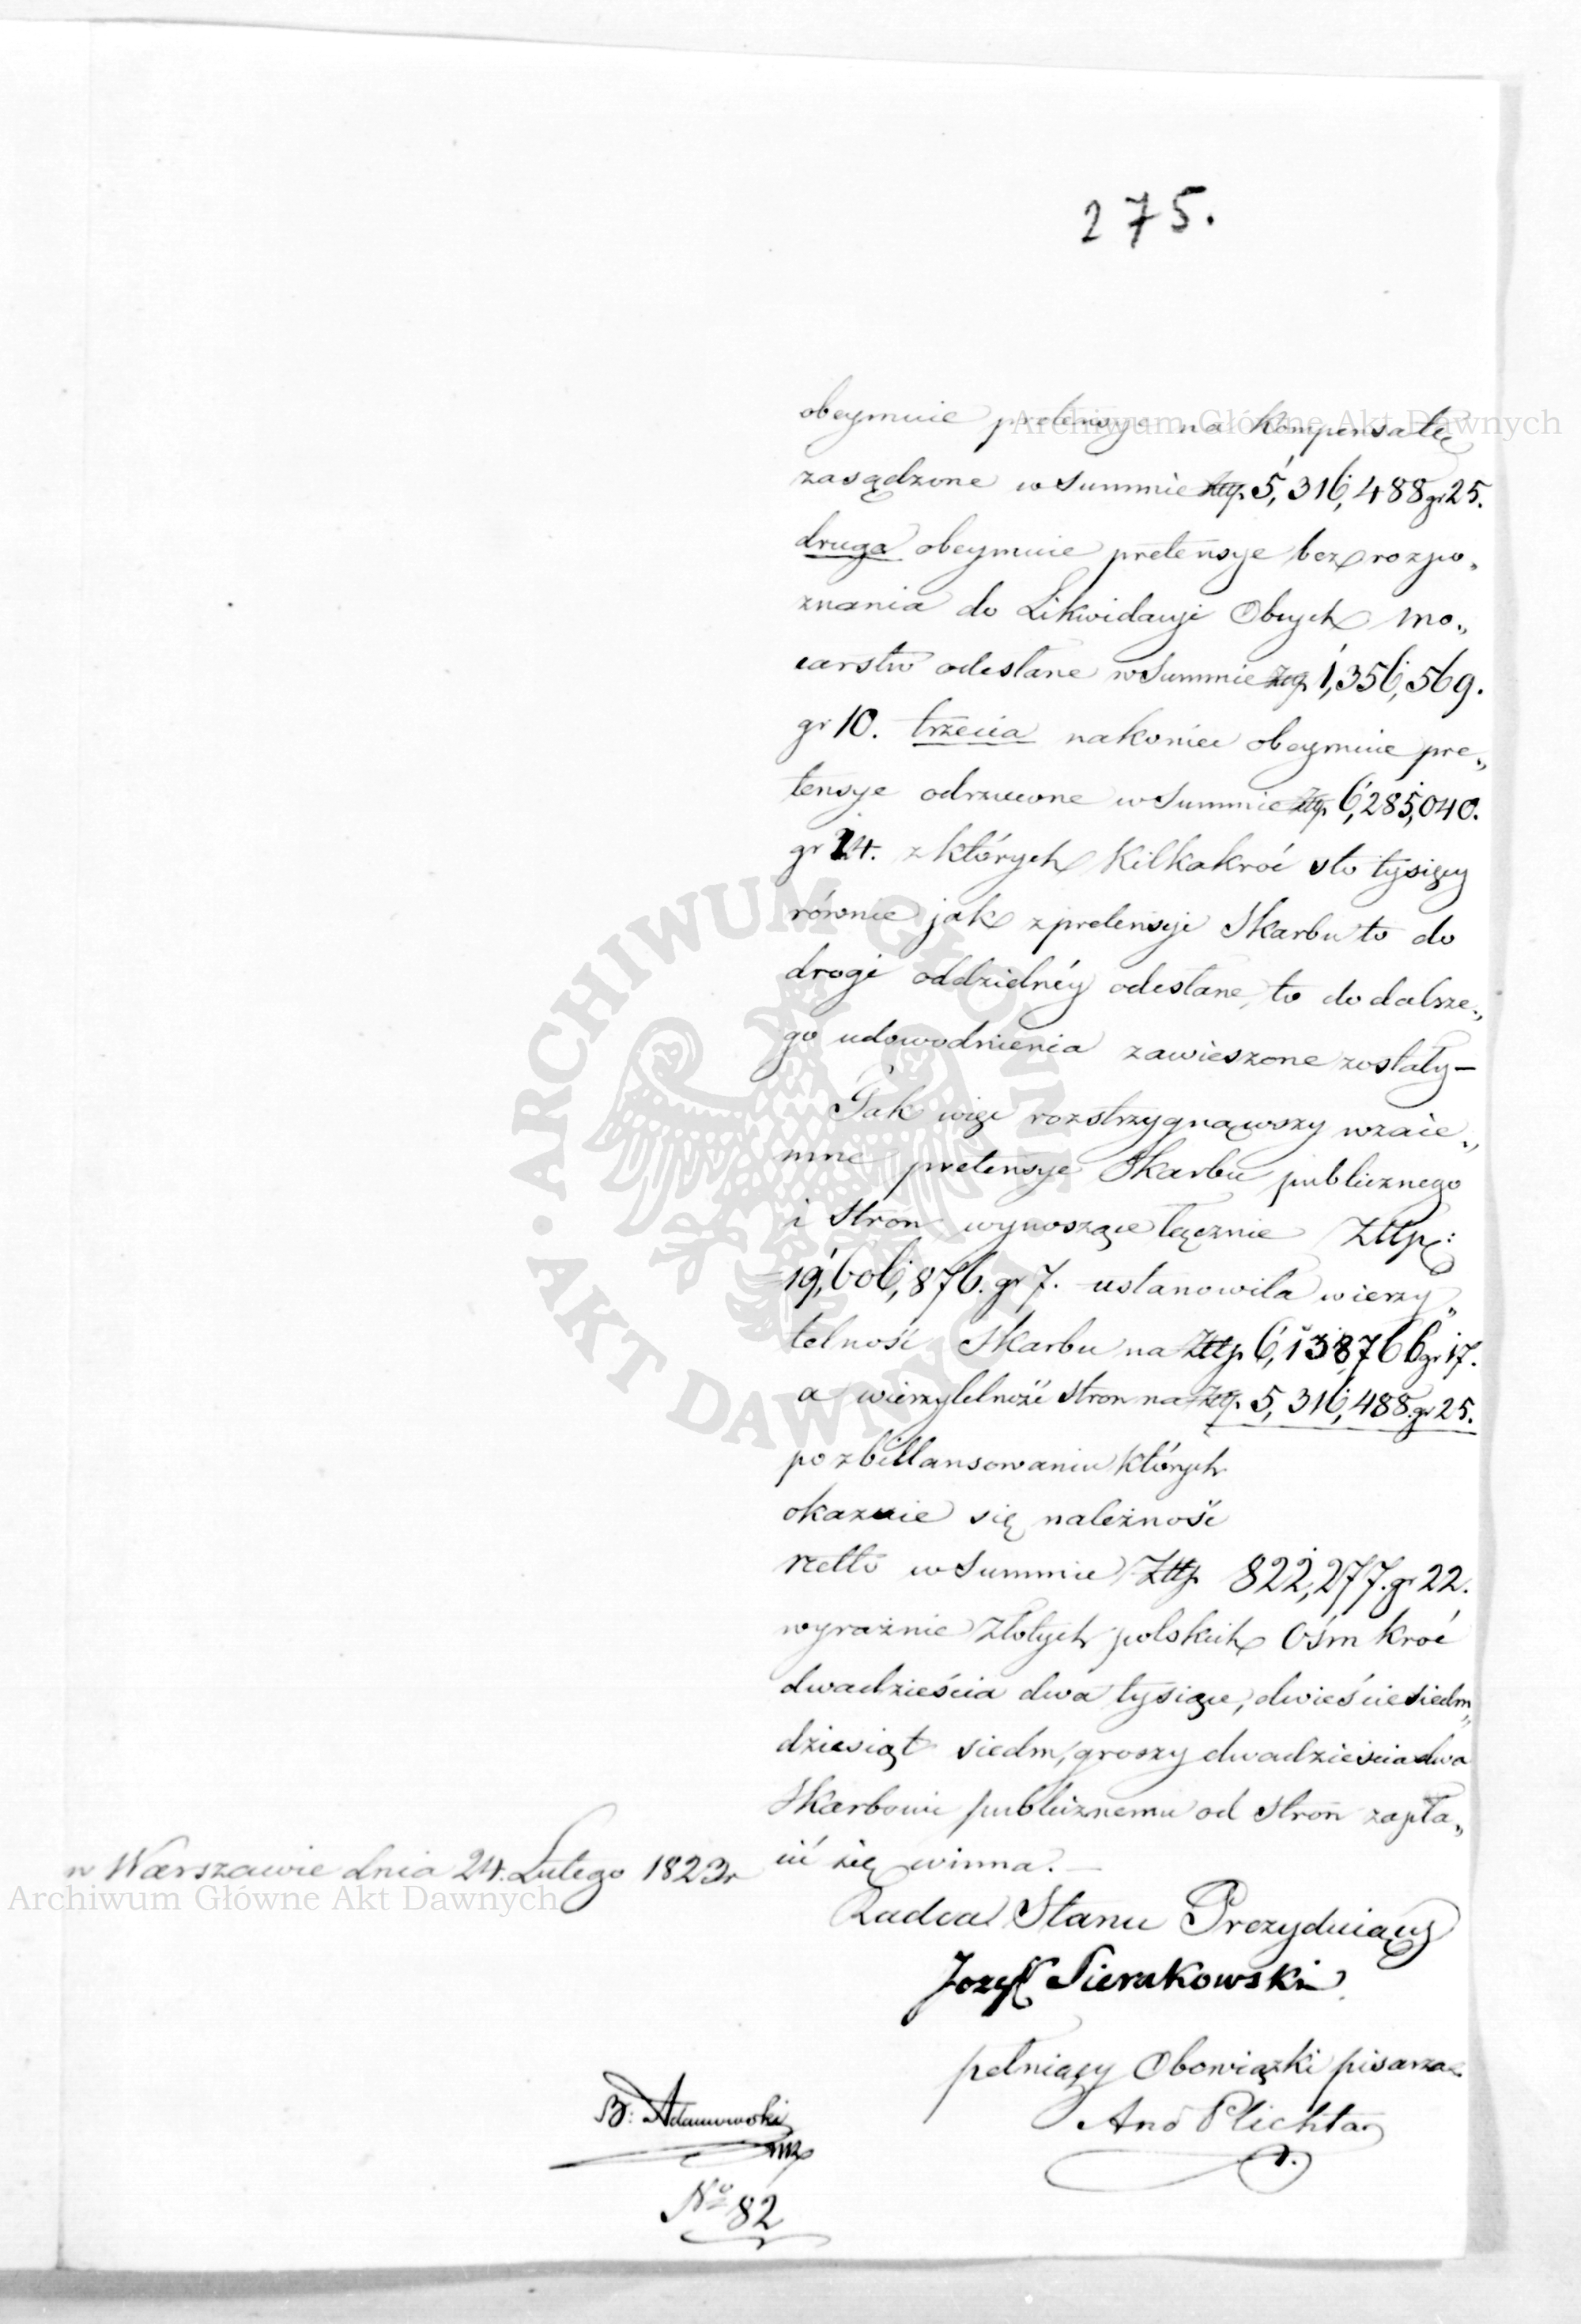 275.
obeymuie pretensye na kompensatę
zasądzone w Summie Złtp. 5,316,488 gr 25.
druga obeymuie pretensye bez rozpo„
znania do Likwidacyi Obcych Mo„
carstw odesłane w Summie Złtp. 1,356,569.
gr 10. trzecia nakoniec obeymuie pre„
tensye odrzucone w Summie Złtp. 6,285,040.
gr 24. z których kilkakroć sto tysięcy
równie jak z pretensyi Skarbu to do
drogi oddzielnéy odesłane, to do dalsze„
go udowodnienia zawieszone zostały—
Tak więc rozstrzygnąwszy wzaie„
mne pretensye Skarbu publicznego
i Stron wynoszące łącznie Złtp:
19,606,876. gr 7. ustanowiła wierzy„
telność Skarbu na Złtp. 6,138,766 gr 17.
a wierzytelność Stron na Złtp. 5,316,488. gr 25.
po zbillansowaniu których
okazuie się należność
netto w Summie Złtp. 822,277. gr 22.
wyraźnie Złotych polskich Ośm kroć
dwadzieścia dwa tysiące, dwieście siedm„
dziesiąt siedm, groszy dwadzieścia dwa
Skarbowi publicznemu od Stron zapła„
cić się winna.—
w Warszawie dnia 24. Lutego 1823 r
Radca Stanu Prezyduiący
Jozef Sierakowski
pełniący Obowiązki pisarza
And Plichta
B: Adamowski
mp
No 82
Archiwum Główne Akt Dawnych
Archiwum Główne Akt Dawnych
ARCHIWUM GŁÓWNE
AKT DAWNYCH